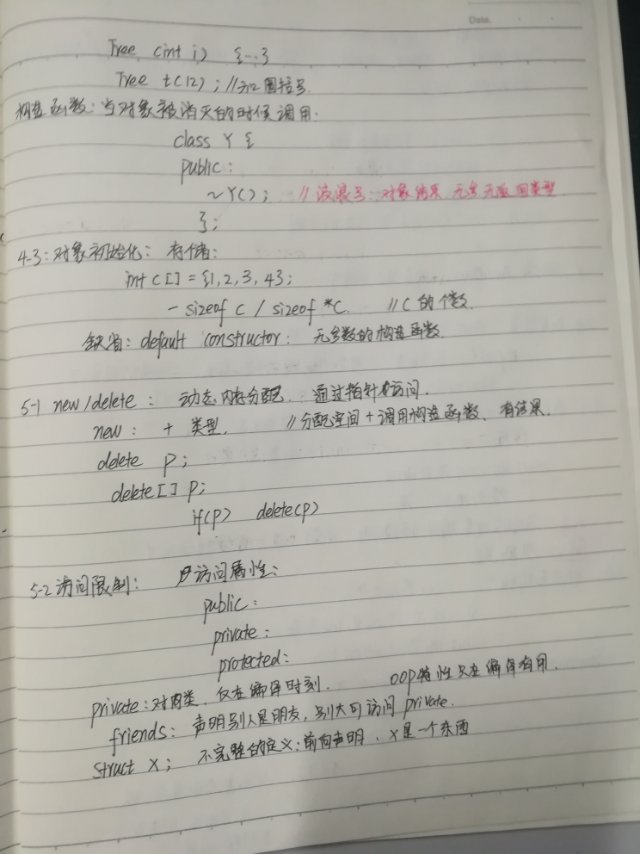 Date.
Tree (int i) {…}
Tree t(12); //加圆括号
析构函数:当对象被消灭的时候调用.
class Y {
public:
~Y(); //波浪号:对象结束 无参无返回类型
};
4-3:对象初始化: 存储:
int c[] = {1,2,3,4};
- sizeof c / sizeof *c. //C的个数
缺省: default constructor: 无参数的构造函数.
5-1 new/delete: 动态内存分配, 通过指针访问.
new: + 类型. //分配空间+调用构造函数、有结果.
delete p;
delete[] p;
if(p) delete(p)
5-2 访问限制: 访问属性:
public:
private:
protected:
private:对同类. 仅在编译时刻. OOP特性只在编译有用.
friends: 声明别人是朋友,别人可访问 private.
struct X; 不完整的定义:前向声明、X是一个东西